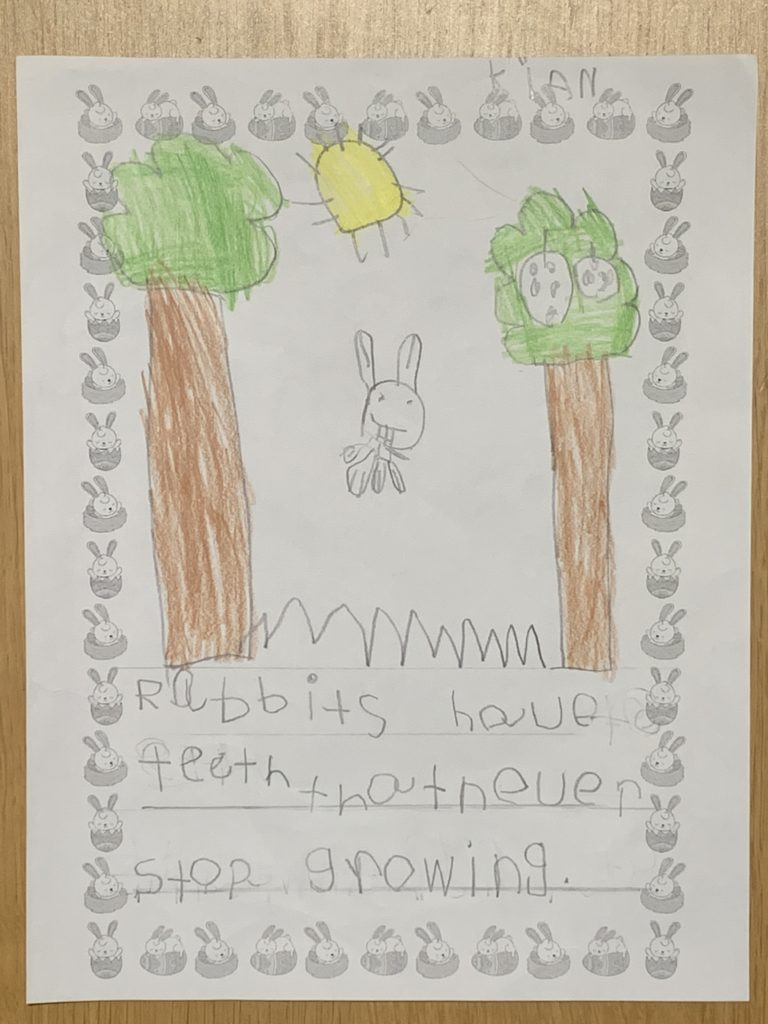 tiAN
Rabbits have
teeth that never
stop growing.